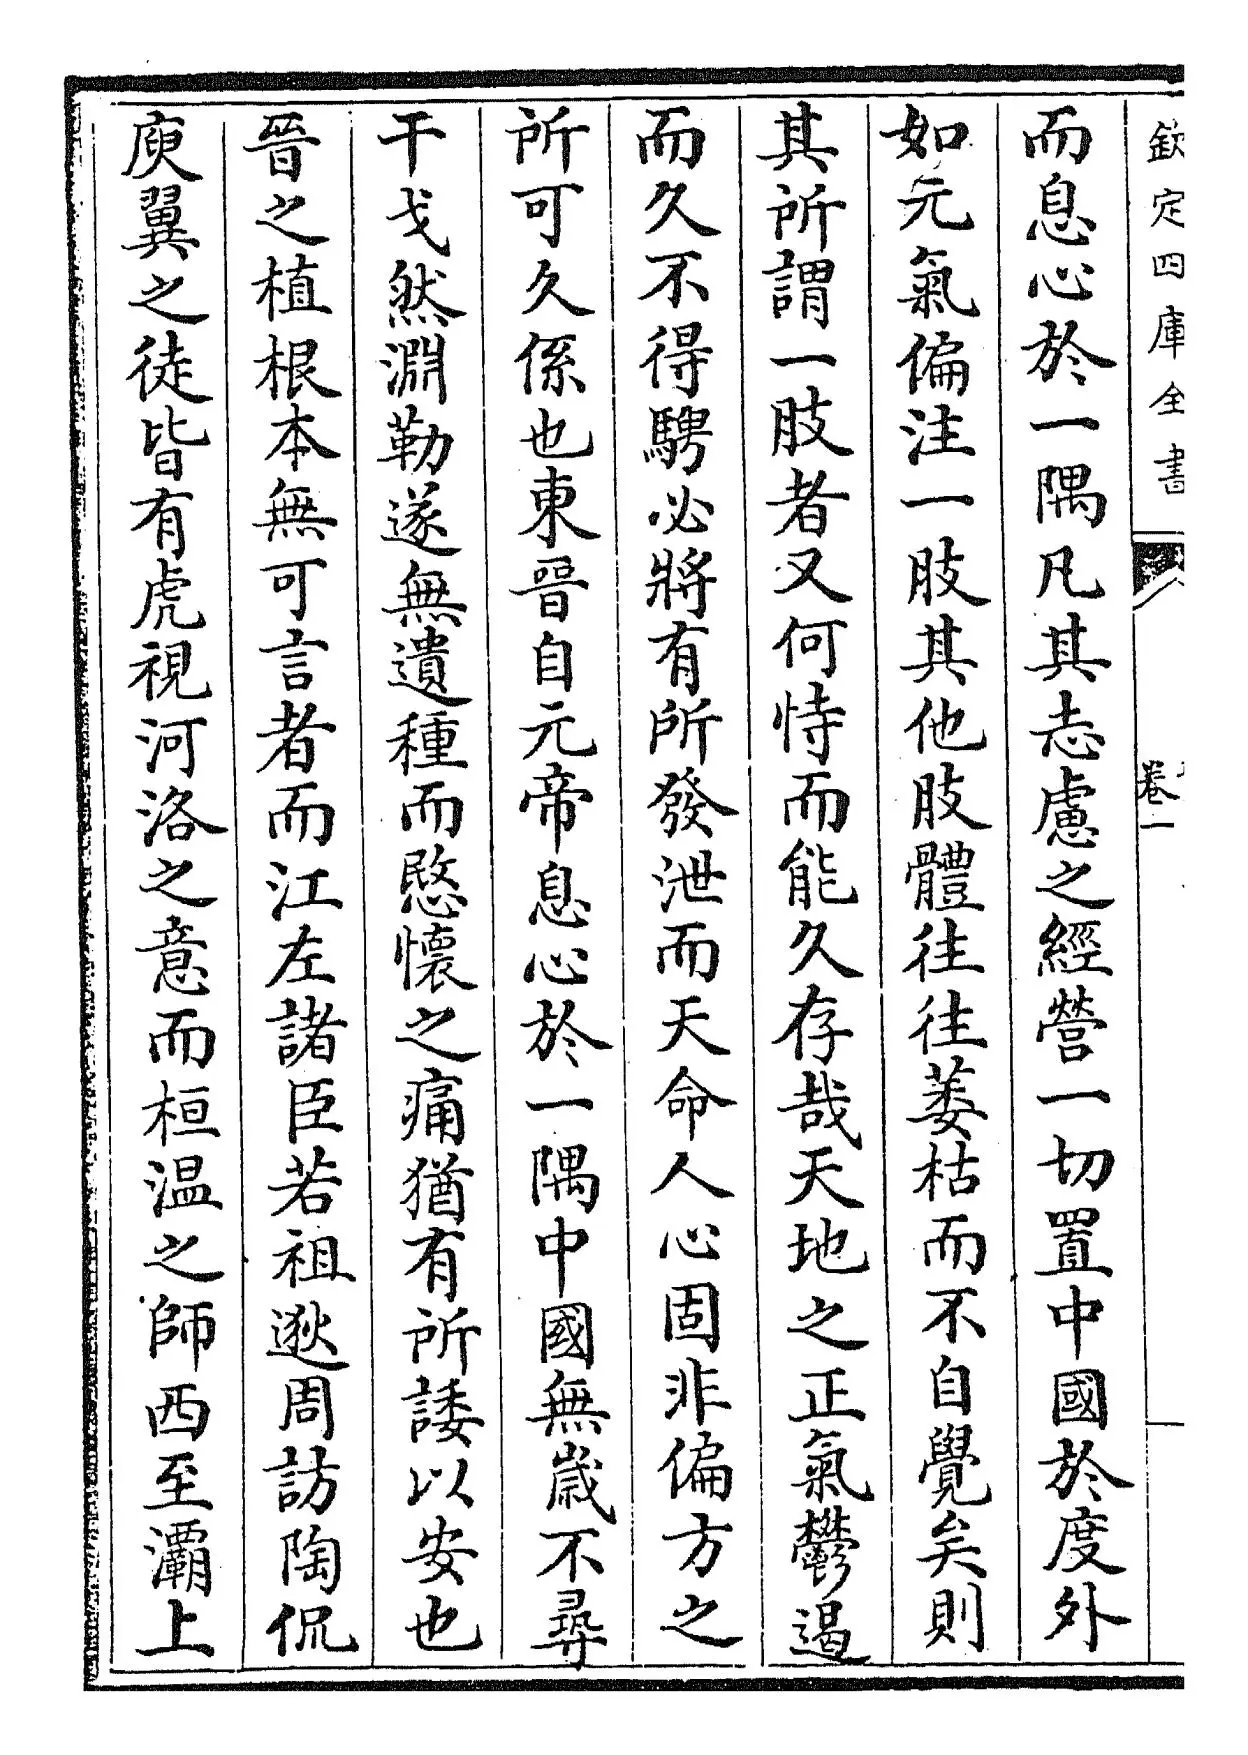 欽定四庫全書
卷一
而息心於一隅凡其志慮之經營一切置中國於度外
如元氣偏注一肢其他肢體往往萎枯而不自覺矣則
其所謂一肢者又何恃而能久存哉天地之正氣鬱遏
而久不得騁必將有所發泄而天命人心固非偏方之
所可久係也東晉自元帝息心於一隅中國無歲不尋
干戈然淵勒遂無遺種而愍懷之痛猶有所諉以安也
晉之植根本無可言者而江左諸臣若祖逖周訪陶侃
庾翼之徒皆有虎視河洛之意而桓温之師西至灞上